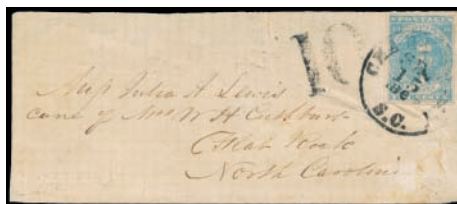 POSTAGE
10
S.C.
Miss Julia A. Lewis
care of Mrs W H Cuthbert
Flat Rock
North Carolina